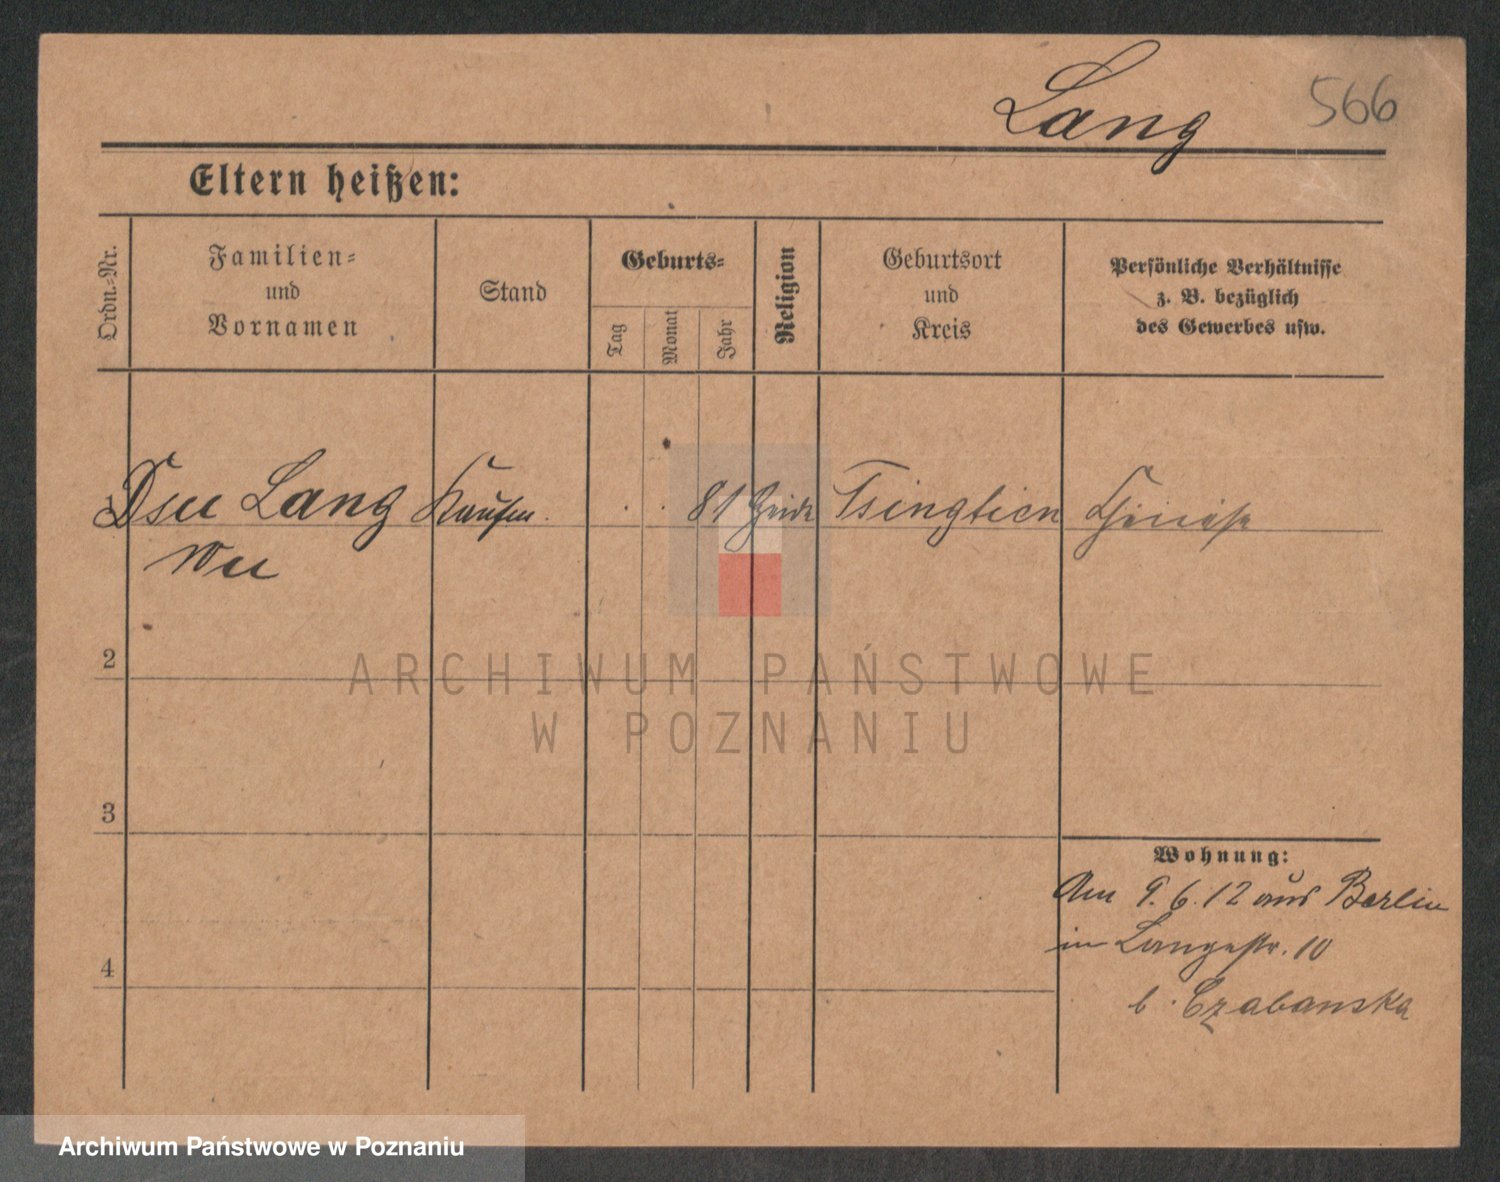 Lang 566
Eltern heißen:
Ordn.-Nr.
Familien-
und
Vornamen
Stand
Geburts-
Tag
Monat
Jahr
Religion
Geburtsort
und
Kreis
Persönliche Verhältnisse
z. B. bezüglich
des Gewerbes usw.
Dsu Lang Kaufm. . . 81 Heide Tsingtien Chinese
Wu
2
3
4
Wohnung:
Am 9.6.12 aus Berlin
in Langestr. 10
b. Czabanska
ARCHIWUM PAŃSTWOWE
W POZNANIU
Archiwum Państwowe w Poznaniu